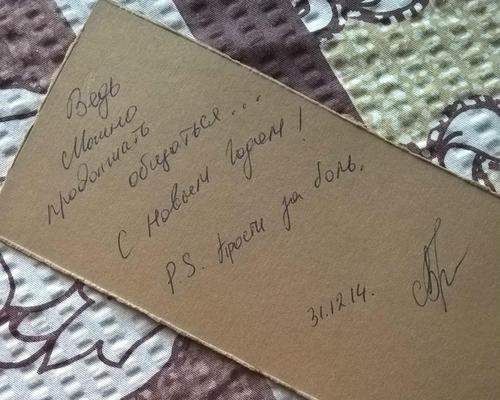 Ведь
можно
продолжать
общаться...
С Новым Годом!
P.S. Прости за боль.
31.12.14.